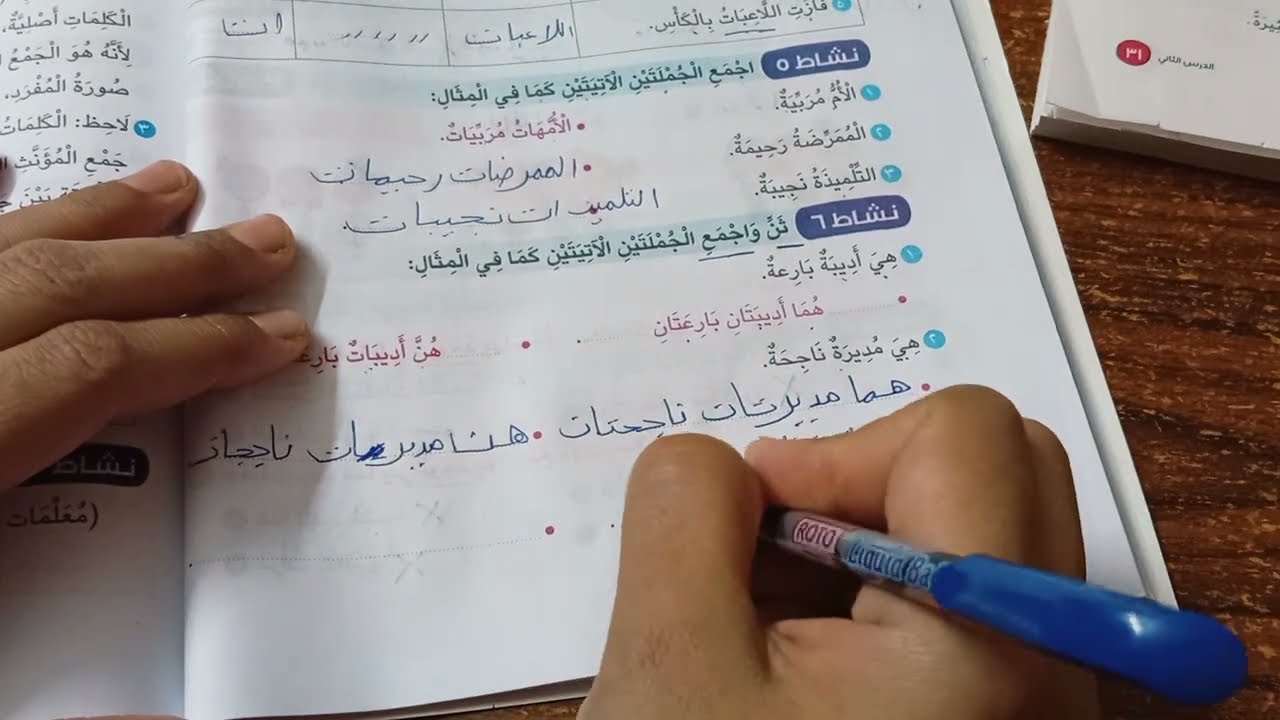 ٥ فَازَتِ اللَّاعِبَاتُ بِالْكَأْسِ. اللاعبات
نشاط ٥ اجْمَعِ الْجُمْلَتَيْنِ الْآتِيَتَيْنِ كَمَا فِي الْمِثَالِ:
١ الْأُمُّ مُرَبِّيَةٌ.
• الْأُمَّهَاتُ مُرَبِّيَاتٌ.
٢ الْمُمَرِّضَةُ رَحِيمَةٌ.
• الممرضات رحيمات
٣ التِّلْمِيذَةُ نَجِيبَةٌ.
التلميذات نجيبات.
نشاط ٦ ثَنِّ وَاجْمَعِ الْجُمْلَتَيْنِ الْآتِيَتَيْنِ كَمَا فِي الْمِثَالِ:
١ هِيَ أَدِيبَةٌ بَارِعةٌ.
• هُمَا أَدِيبَتَانِ بَارِعَتَانِ
• هُنَّ أَدِيبَاتٌ
٢ هِيَ مُدِيرَةٌ نَاجِحَةٌ.
• هما مديرتان ناجحتان
• مديرات
الْكَلِمَاتِ أَصْلِيَّةٌ،
لِأَنَّهُ هُوَ الْجَمْعُ
صُورَةُ الْمُفْرَدِ.
٣ لَاحِظ: الْكَلِمَاتُ
جَمْعِ الْمُؤَنَّثِ
نشاط
(مُعَلِّمَات
الدرس الثاني ٣١